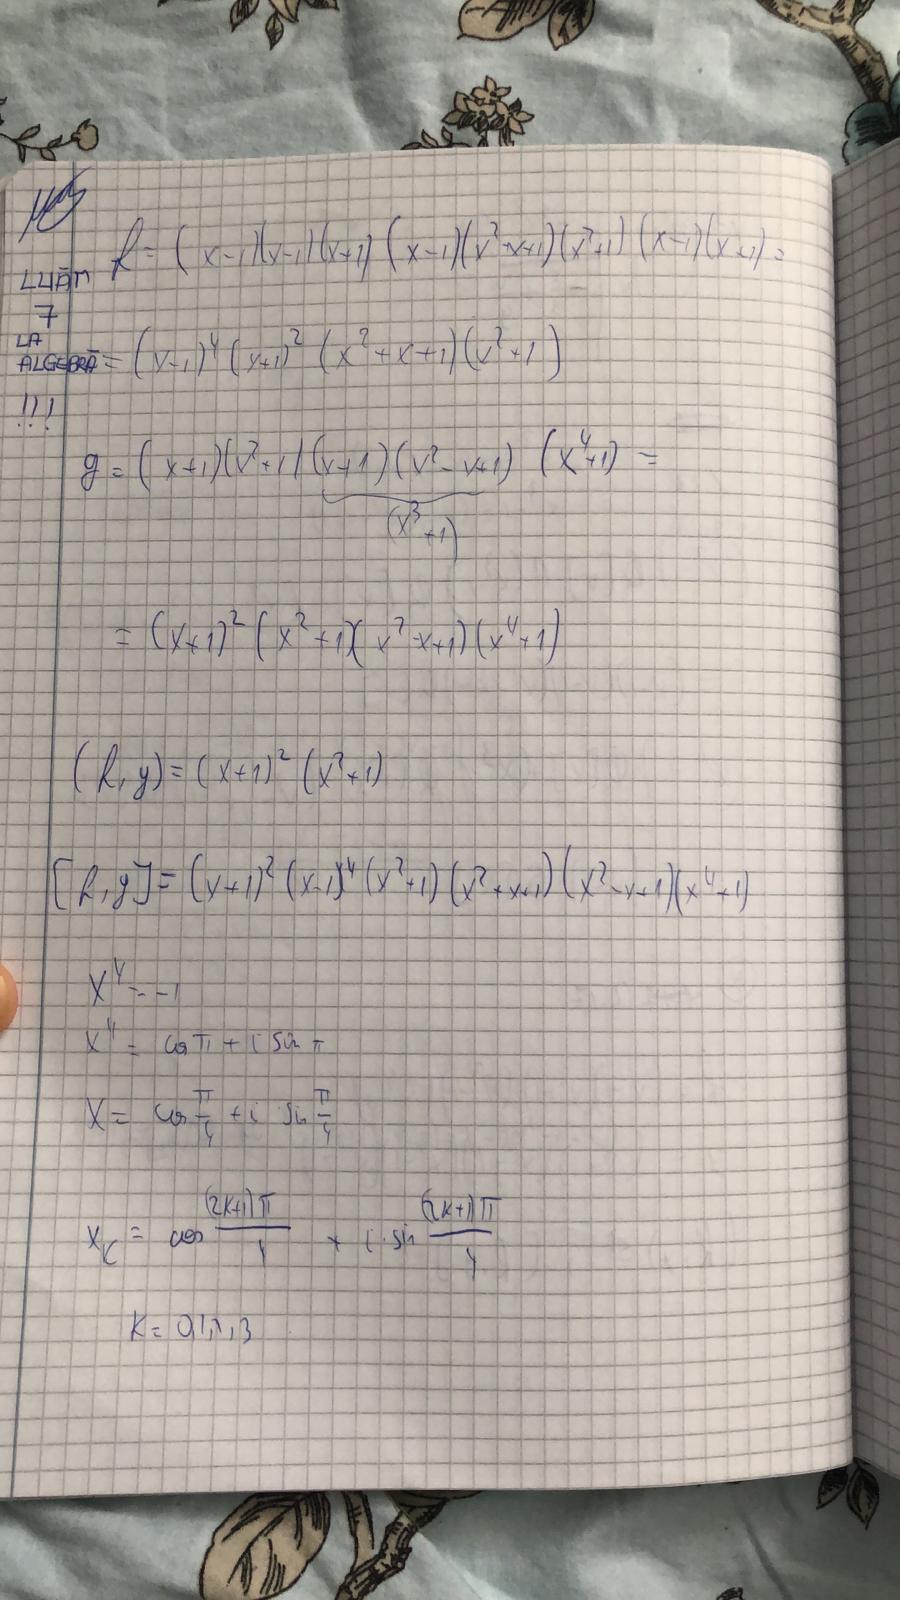 LUĂM
7
LA
ALGEBRĂ
!!!
f = (x-1)(x-1)(x+1)(x-1)(x²+x+1)(x²+1)(x-1)(x+1) =
= (x-1)⁴ (x+1)² (x²+x+1)(x²+1)
g = (x+1)(x²+1)(x+1)(x²-x+1) (x⁴+1) =
(x³+1)
= (x+1)² (x²+1)(x²-x+1)(x⁴+1)
(f,g) = (x+1)² (x²+1)
[f,g] = (x+1)² (x-1)⁴ (x²+1) (x²+x+1) (x²-x+1)(x⁴+1)
x⁴ = -1
x⁴ = cos π + i sin π
x = cos π/4 + i sin π/4
x_K = cos (2k+1)π/4 + i·sin (2k+1)π/4
K = 0,1,2,3